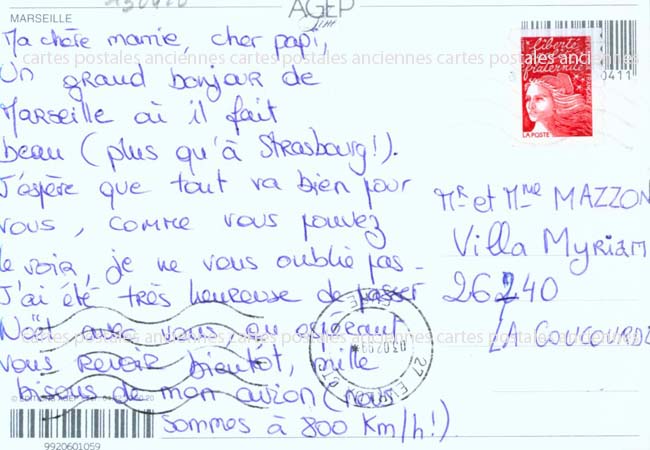 MARSEILLE
AGEP
Ma chère mamie, cher papi,
Un grand bonjour de
Marseille où il fait
beau (plus qu'à Strasbourg!).
J'espère que tout va bien pour
vous, comme vous pouvez
le voir, je ne vous oublie pas -
J'ai été très heureuse de passer
Noël avec vous en espérant
vous revoir bientôt, mille
bisous de mon avion (nous
sommes à 800 km/h!)
Liberté
fraternité
LA POSTE
0411
Mr et Mme MAZZON
Villa Myriam
26240
LA COUCOURDE
cartes postales anciennes cartes postales anciennes cartes postales anciennes
cartes postales anciennes cartes postales anciennes cartes postales anciennes
9920601059